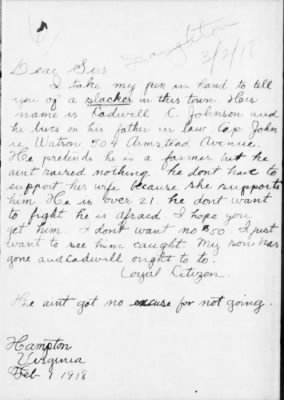 3/2/18
Dear Sirs
I take my pen in hand to tell
you of a slacker in this town His
name is Cadwill C. Johnson and
he lives on his father in law Cap John
Watson 504 Armstead Avenue.
He pretends he is a farmer but he
aint raised nothing he dont have to
support his wife because she supports
him He is over 21. he dont want
to fight he is afraid I hope you
get him. I dont want no $50. I just
want to see him caught. My son has
gone and Cadwill ought to to.
Loyal Citizen.
He aint got no excuse for not going.
Hampton
Virginia
Feb 9 1918